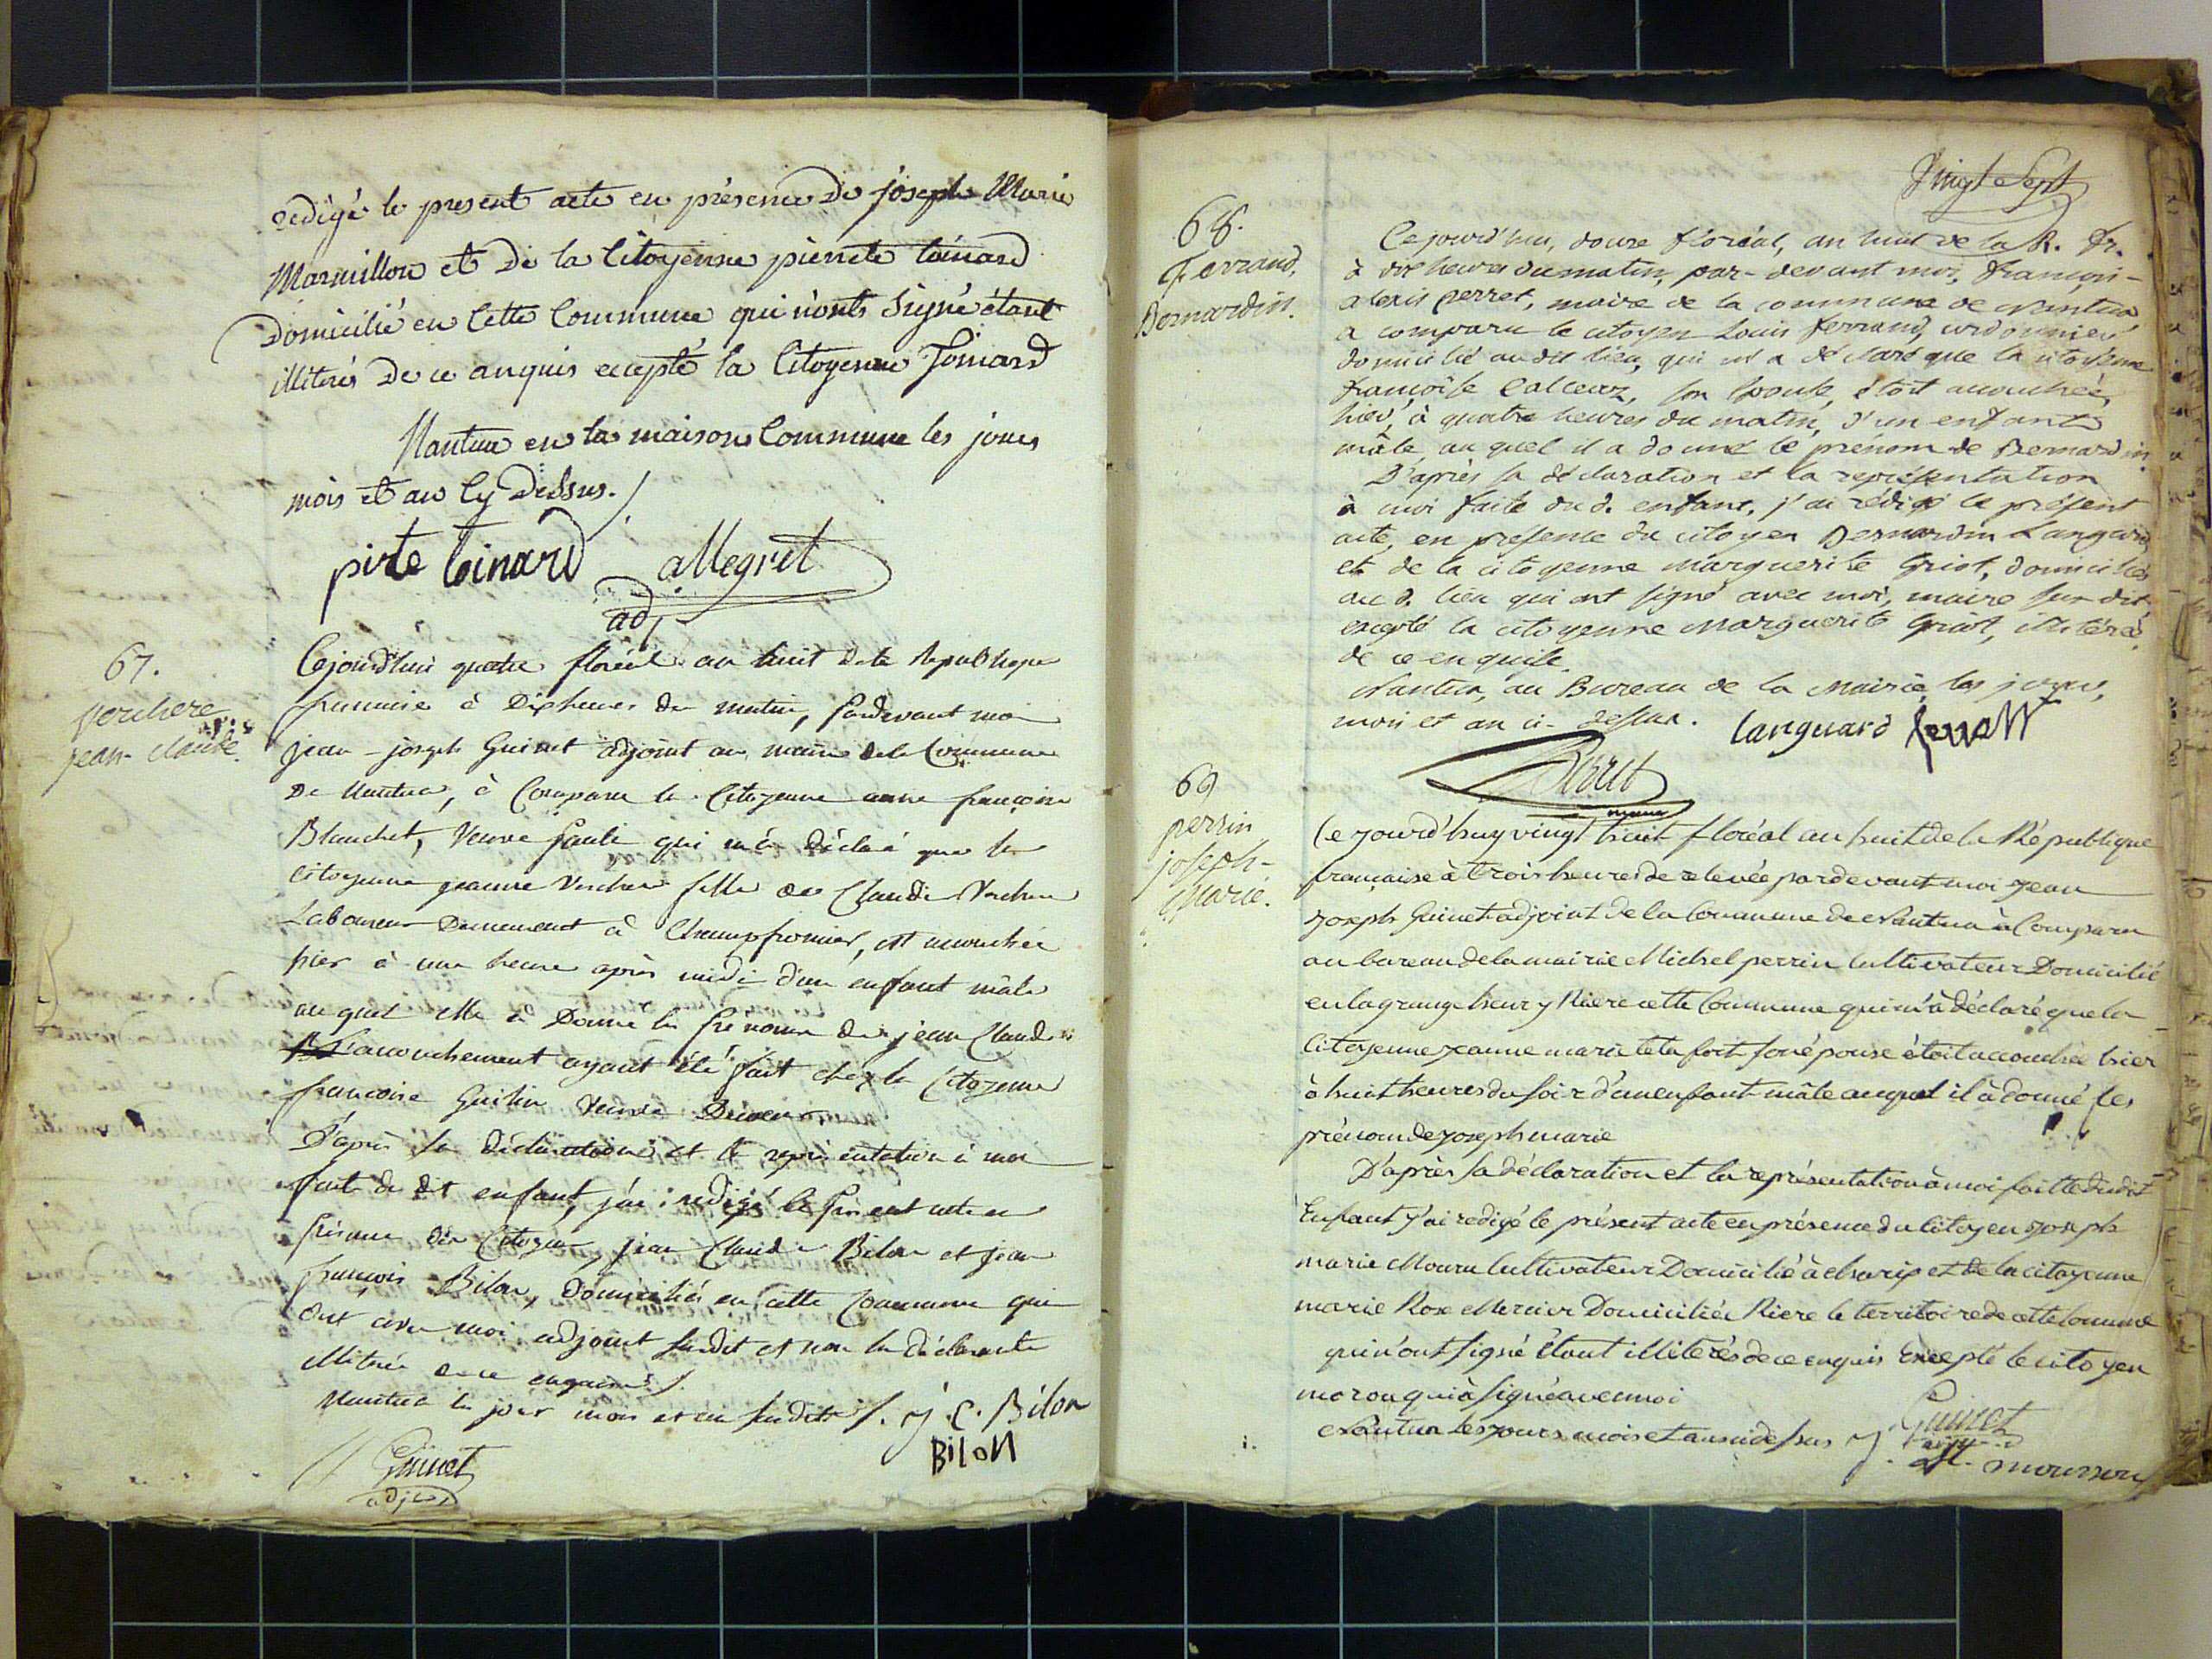 redigé le present acte en présence de joseph Marie
Marmillon et De la Citoyenne pierrete toinard
Domicilié en Cette Commune qui n'onts Signé étant
illiterés De ce anquis ecepté la Citoyenne Toinard
Nantua en la maison Commune les jours
mois et an Cy Dessus./
pirte toinard allegret
adj
67.
Verchere
jean-claude.
Cejourd'hui quatre floréal an huit de la Republique
francaise à Dix heures du matin, Pardevant moi
jean-joseph Guinet adjoint au maire de la Commune
De Nantua, à Comparu la Citoyenne anne françoise
Blanchet, Veuve qui m'a déclaré que la
citoyenne jeanne Vercher fille de Claude Vercher
Laboureur Demeurant à Champfromier, est accouchée
hier à une heure après midi d'un enfant mâle
au quel elle a Donné les prénoms de jean Claude
L'acouchement ayant été fait chez la Citoyenne
françoise Veuve
D'après la déclaration et la représentation à moi
faite du dit enfant, j'ai redigé le présent acte en
présence des Citoyens jean Claude Bilon et jean
françois Bilon, domiciliés en cette Commune qui
ont avec moi adjoint susdit et non la déclarante
illitérée de ce enquise /.
Nantua les jour mois et an susdits /. J. C. Bilon
BiloN
Guinet
adjoint
Vingt Sept
68.
Ferrand,
Bernardin.
Ce jourd'hui, douze floréal, an huit de la R. fr.
à dix heures du matin, par-devant moi, françois-
alexis perret, maire de la commune de Nantua
a comparu le citoyen Louis ferrand, cordonnier
domicilié au dit lieu, qui m'a déclaré que la citoyenne
françoise, son Epouse, étoit accouchée,
hier, à quatre heures du matin, d'un enfant
mâle, au quel il a donné le prénom de Bernardin.
D'après sa déclaration et la représentation
à moi faite du d. enfant, j'ai rédigé le présent
acte, en présence du citoyen Bernardin Languard
et de la citoyenne Marguerite Griot, domiciliés
au d. lieu qui ont signé avec moi, maire sus-dit
excepté la citoyenne Marguerite Griot, illitérée
de ce enquise.
Nantua, au Bureau de la Mairie, les jours,
mois et an ci-dessus. languard
Perret
maire
69
perrin
joseph-
Marie.
Ce jourd'huy vingt huit floréal an huit de la République
française à trois heures de relevée pardevant moi jean
joseph Guinet adjoint de la Commune de Nantua à Comparu
au bureau de la mairie Michel perrin Cultivateur Domicilié
en la grange henry Riere cette Commune qui m'à déclaré que la
Citoyenne jeanne marie son épouse étoit accouchée hier
à huit heures du soir d'un enfant mâle auquel il à donné les
prénom de joseph marie
D'après sa déclaration et la représentation à moi faitte dudit
Enfant j'ai redigé le présent acte en présence du Citoyen joseph
marie Cultivateur Domicilié à et de la citoyenne
marie Rose Mercier Domiciliée Riere le territoire de cette Commune
qui n'ont signé étant illiterés de ce enquis Excepté le citoyen
qui à signé avec moi
Nantua les jours mois et an cidessus J. Guinet
adjt.